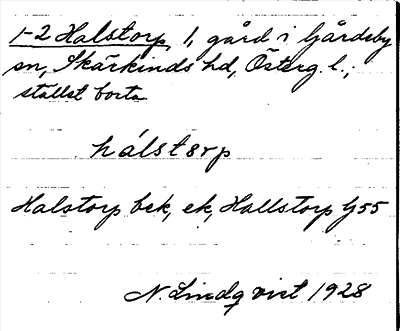 1-2 Halstorp, 1, gård i Gårdeby
sn, Skärkinds hd, Österg. l.;
stället borta
hálstørp
Halstorp bek, ek, Hallstorp G55
N. Lindqvist 1928